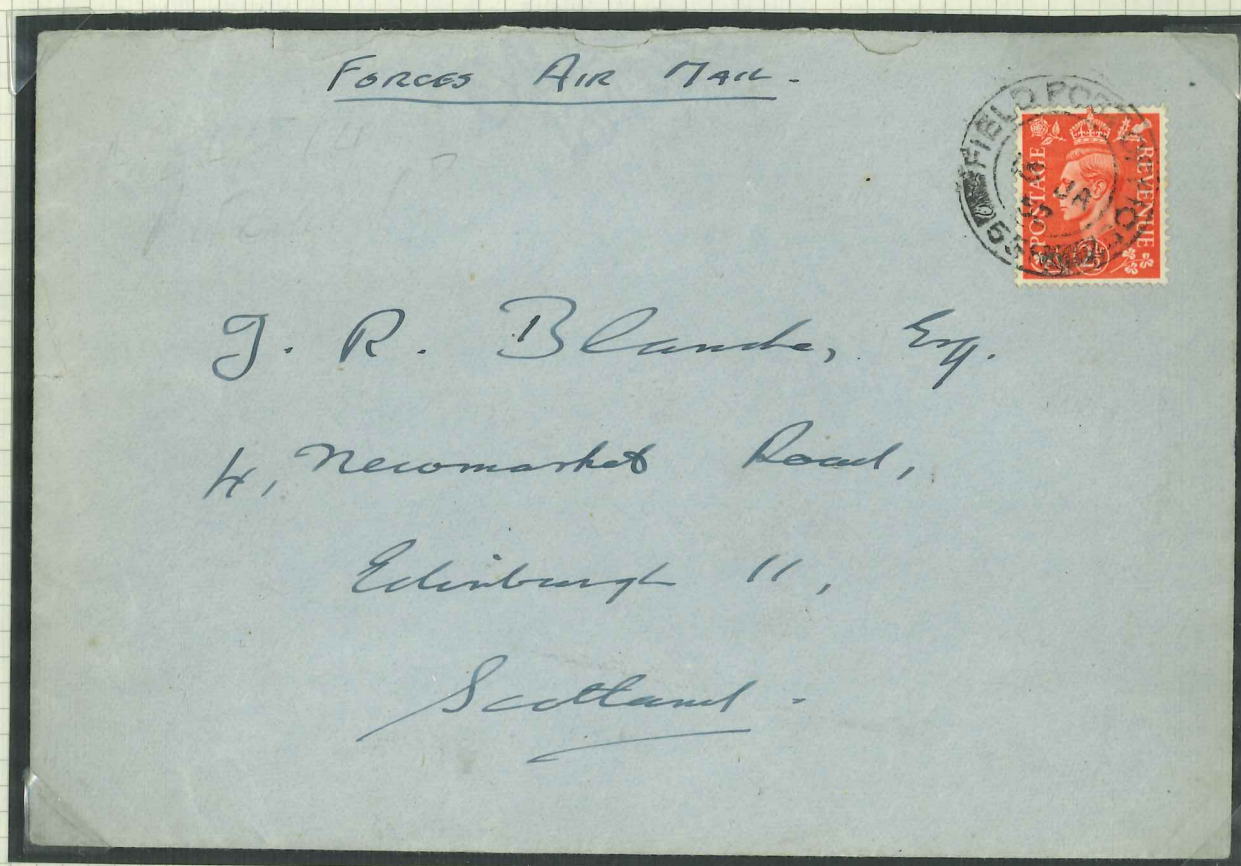 FORCES AIR MAIL -
FIELD POST OFFICE
JA
POSTAGE REVENUE
J. R. Blands, Esq.
4, Newmarket Road,
Edinburgh 11,
Scotland -